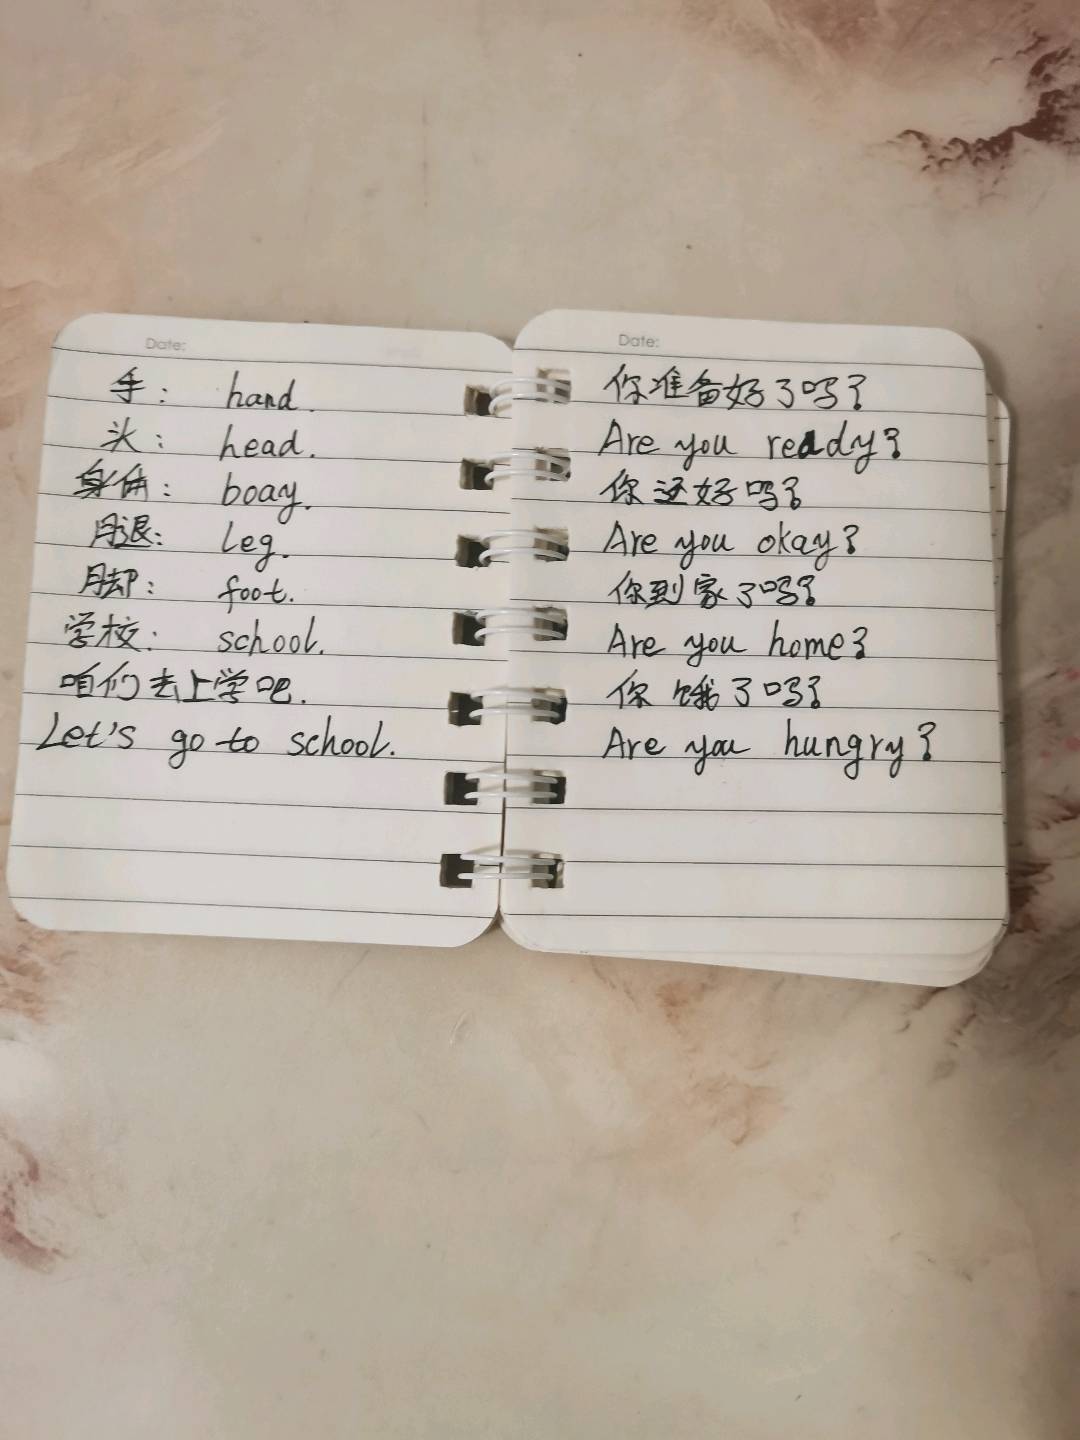 Date:
手: hand.
头: head.
身体: boay.
腿: leg.
脚: foot.
学校: school.
咱们去上学吧.
Let's go to school.
Date:
你准备好了吗?
Are you ready?
你还好吗?
Are you okay?
你到家了吗?
Are you home?
你饿了吗?
Are you hungry?